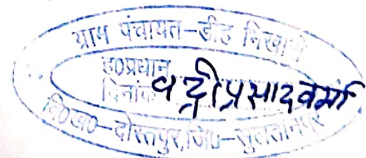 ग्राम पंचायत-डीह निखासी
ह०प्रधान
दिनांक
बद्रीप्रसादवर्मा
वि०ख०-दोस्तपुर,जि०-सुलतानपुर